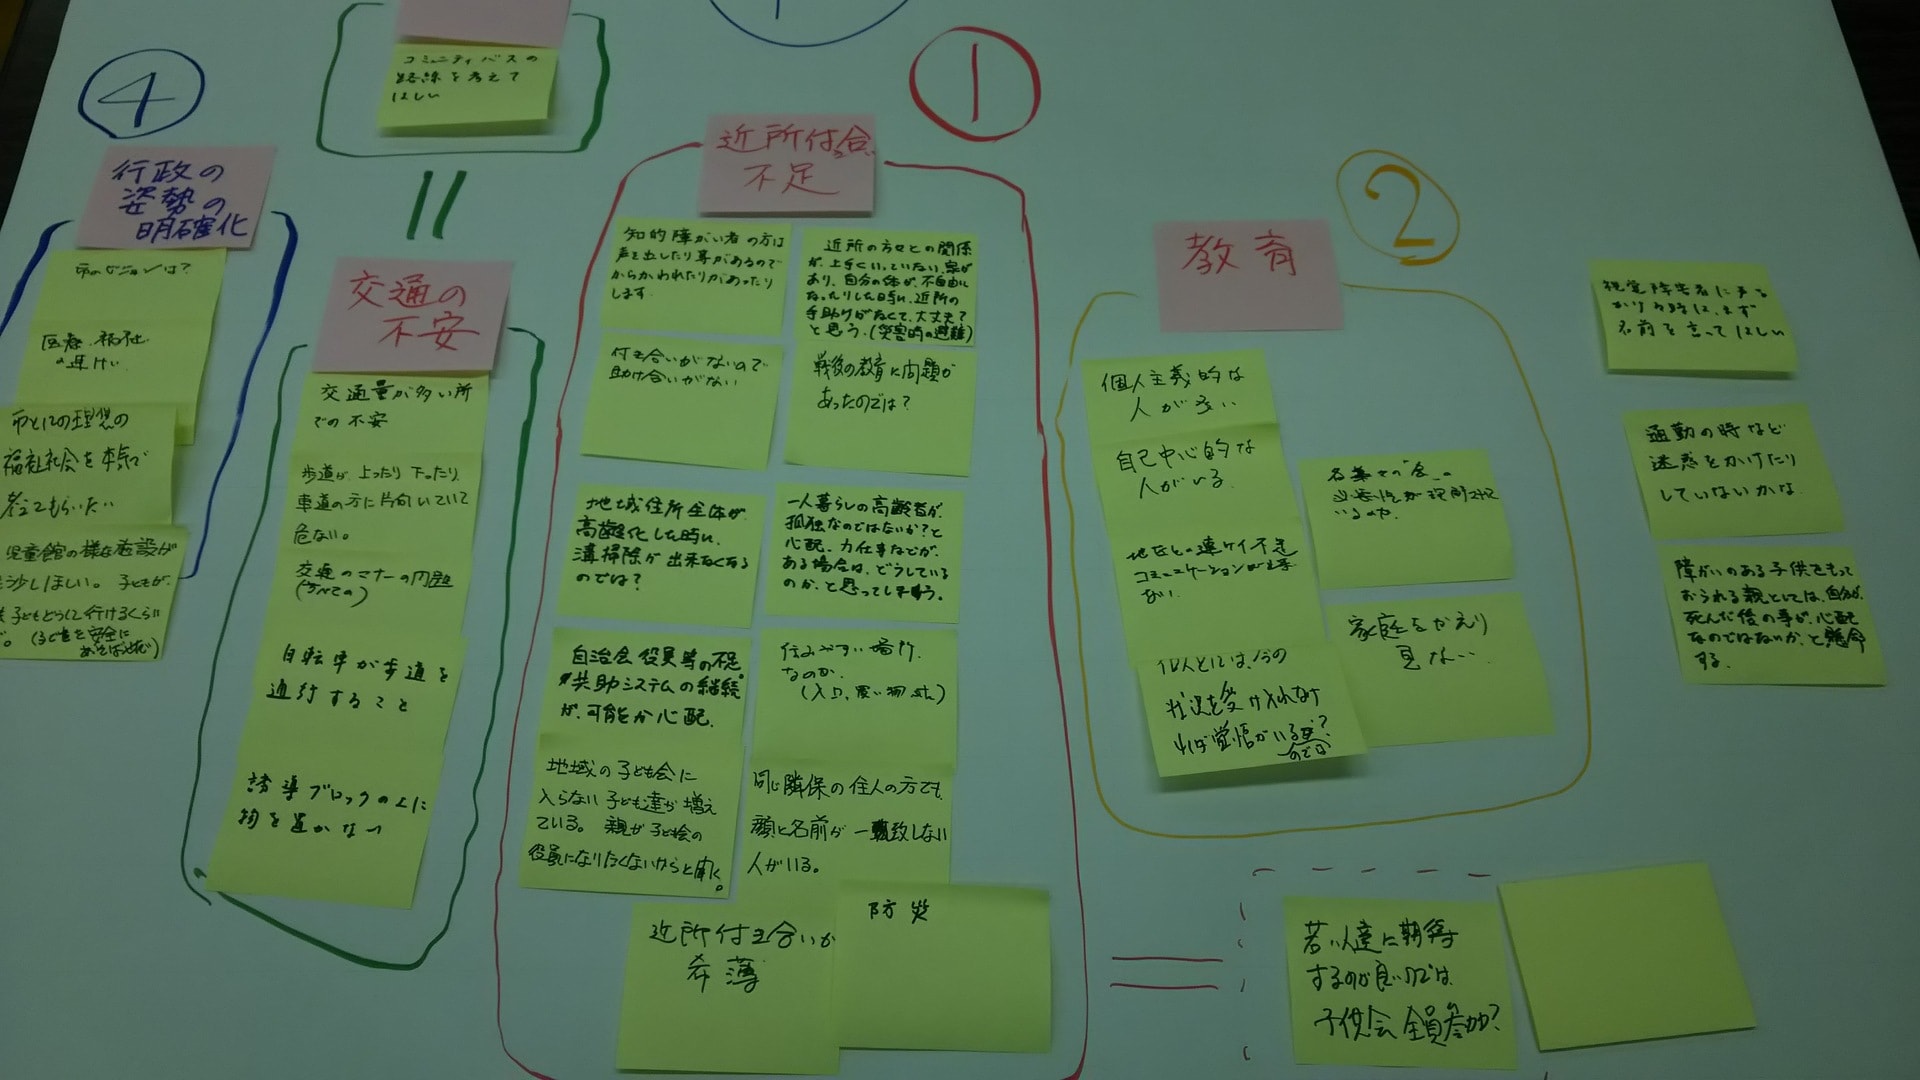 コミュニティバスの
路線を考えて
ほしい
④
行政の
姿勢の
明確化
市のビジョンは?
医療・福祉
市としての理想の
福祉社会を本気で
考えてもらいたい
児童館の様な施設が
少しほしい。子どもが
子どもどうしで行けるくらい
(子どもを安全に
交通の
不安
交通量が多い所
での不安
歩道が、上ったり下ったり、
車道の方に片向いていて
危ない。
交通のマナーの問題
(すべての)
自転車が歩道を
通行すること
誘導ブロックの上に
物を置かない
①
近所付合い
不足
知的障がい者の方は
声を出したり等があるので
からかわれたりがあったり
します。
近所の方々との関係
が、上手くいっていない、家が
あり、自分の体が、不自由に
なったりした時に、近所の
手助けがなくて、大丈夫?
と思う。(災害時の避難)
付き合いがないので
助け合いがない
戦後の教育に問題が
あったのでは?
地域住所全体が、
高齢化した時に、
溝掃除が出来なくなる
のでは?
一人暮らしの高齢者が、
孤独なのではないか?と
心配、力仕事などが、
ある場合は、どうしている
のか、と思ってしまう。
自治会役員等の不足。
共助システムの継続
が、可能か心配。
住みやすい場所
なのか、
地域の子ども会に
入らない子ども達が増え
ている。親が子ども会の
役員になりたくないからと聞く。
同じ隣保の住人の方でも、
顔と名前が一致しない
人がいる。
近所付き合いが
希薄
防災
②
教育
個人主義的な
人が多い
自己中心的な
人がいる
地区との連ケイ不足
家庭をかえり
見ない
状況を受け入れなけ
れば覚悟がいる
視覚障害者に声を
かける時は、まず
名前を言ってほしい
通勤の時など
迷惑をかけたり
していないかな
障がいのある子供をもって
おられる親としては、自分が、
死んだ後の事が、心配
なのではないか、と懸念
する。
若い人達に期待
するのが良いのでは
子供会全員参加?